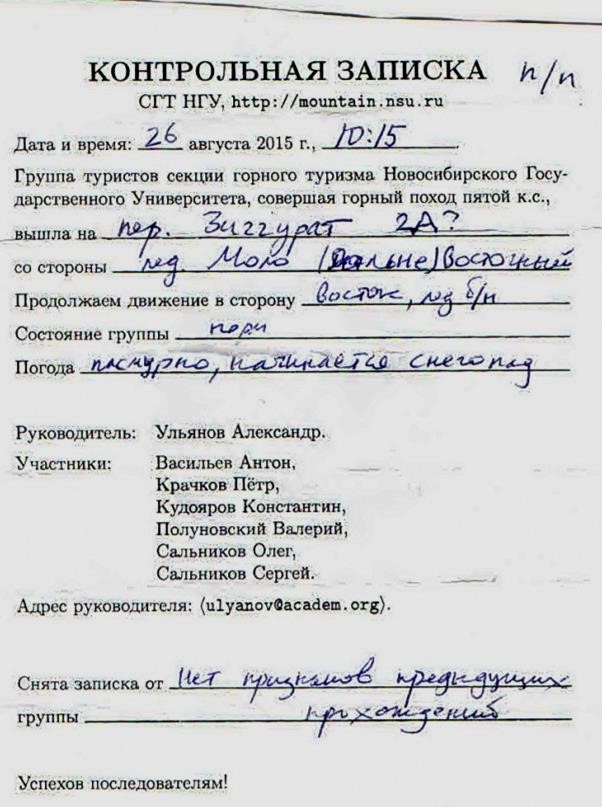 КОНТРОЛЬНАЯ ЗАПИСКА п/п
СГТ НГУ, http://mountain.nsu.ru
Дата и время: 26 августа 2015 г., 10:15.
Группа туристов секции горного туризма Новосибирского Госу-
дарственного Университета, совершая горный поход пятой к.с.,
вышла на пер. Зиггурат 2А?
со стороны лед. Моло (Дальне)Восточный
Продолжаем движение в сторону восток, лед б/н
Состояние группы норм
Погода пасмурно, начинается снегопад
Руководитель: Ульянов Александр.
Участники: Васильев Антон,
Крачков Пётр,
Кудояров Константин,
Полуновский Валерий,
Сальников Олег,
Сальников Сергей.
Адрес руководителя: ⟨ulyanov@academ.org⟩.
Снята записка от Нет признаков предыдущих
группы прохождений
Успехов последователям!